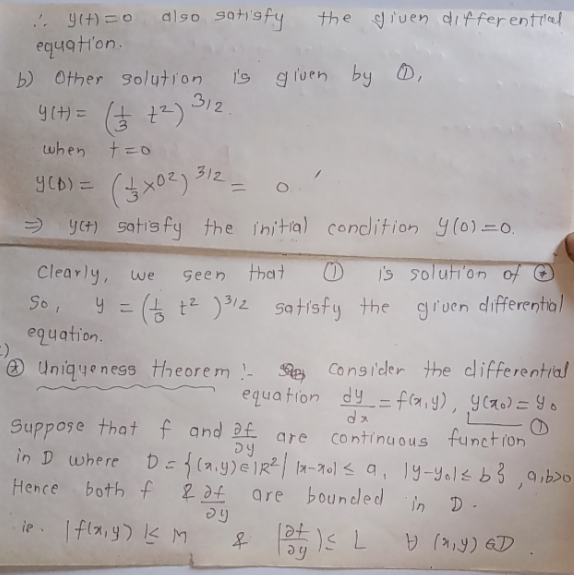 ∴ y(t)=0 also satisfy the given differential
equation.
b) Other solution is given by ①,
y(t) = (1/3 t²)^3/2.
when t=0
y(0) = (1/3 × 0²)^3/2 = 0.
⇒ y(t) satisfy the initial condition y(0)=0.
Clearly, we seen that ① is solution of ⊛
So, y = (1/3 t²)^3/2 satisfy the given differential
equation.
c)
⊛ Uniqueness theorem :- Consider the differential
equation dy/dx = f(x,y), y(x₀) = y₀
①
Suppose that f and ∂f/∂y are continuous function
in D where D = {(x,y) ∈ ℝ² | |x-x₀| ≤ a, |y-y₀| ≤ b}, a,b>0
Hence both f & ∂f/∂y are bounded in D.
ie. |f(x,y)| ≤ M & |∂f/∂y| ≤ L ∀ (x,y) ∈ D.